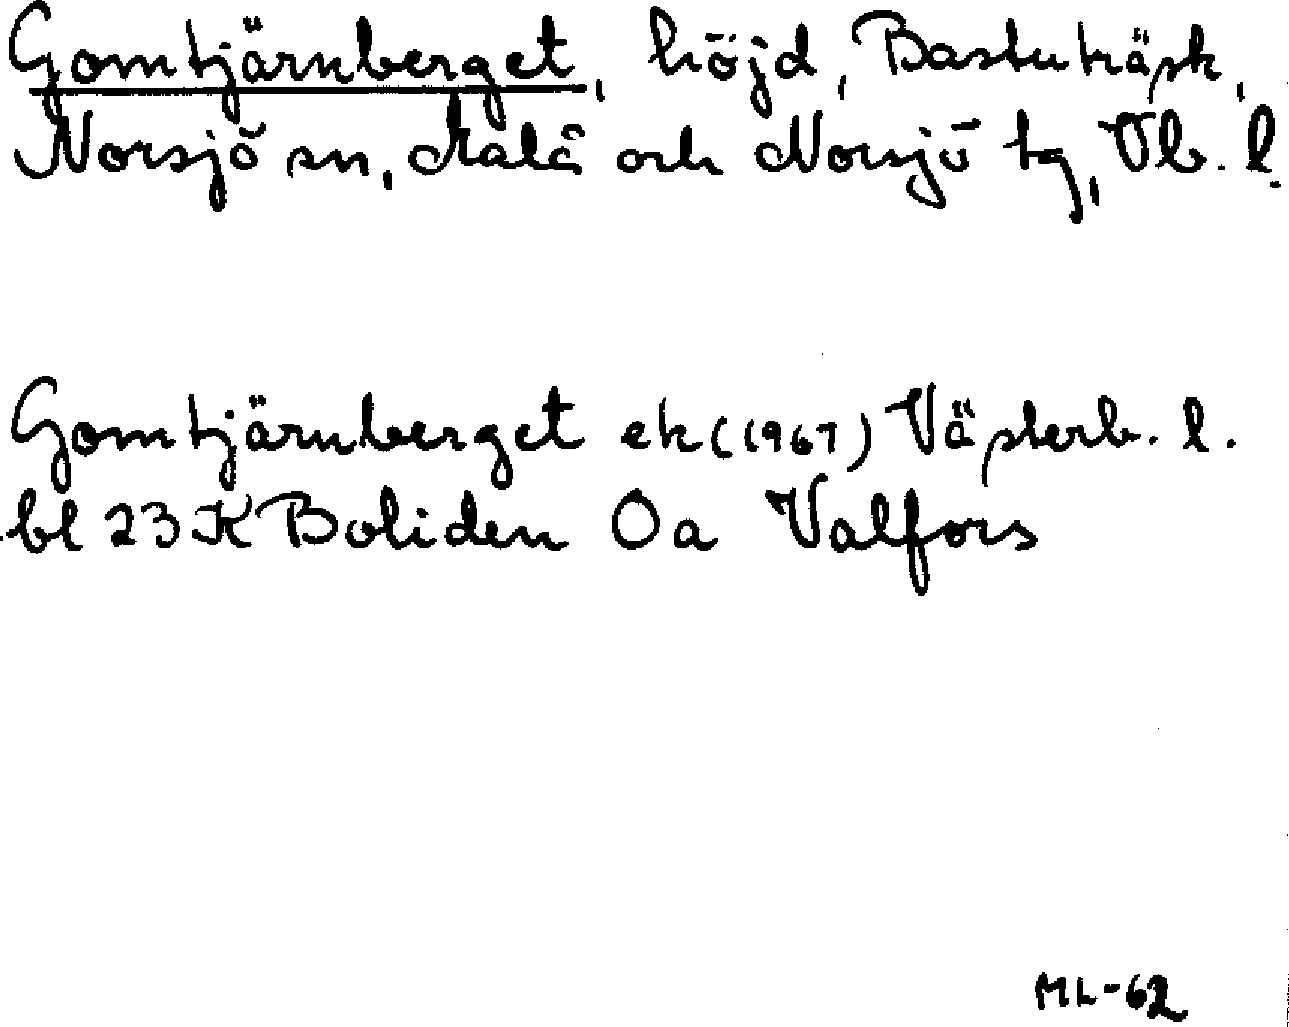 Gomtjärnberget, höjd, Bastuträsk,
Norsjö sn, Malå och Norsjö tg, Vb. l.
Gomtjärnberget ek (1967) Västerb. l.
bl 23 K Boliden 0a Valfors
ML-62